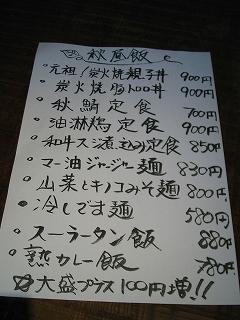 秋昼飯
・元祖!炭火焼親子丼 900円
・炭火焼鳥トロロ丼 900円
・秋鯖定食 700円
・油淋鶏定食 900円
・和牛スジ煮込み定食 850円
・マー油ジャージャー麺 830円
・山菜とキノコみそ麺 800円
・冷しです麺 580円
・スーラータン飯 880円
・熟カレー飯 780円
☆大盛プラス100円増!!